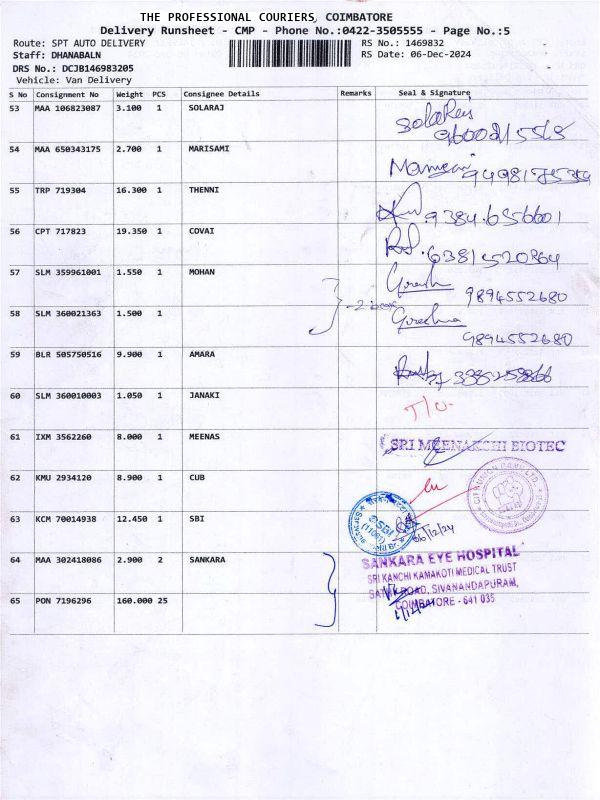 THE PROFESSIONAL COURIERS, COIMBATORE
Delivery Runsheet - CMP - Phone No.:0422-3505555 - Page No.:5
Route: SPT AUTO DELIVERY RS No.: 1469832
Staff: DHANABALN RS Date: 06-Dec-2024
DRS No.: DCJB146983205
Vehicle: Van Delivery
S No Consignment No Weight PCS Consignee Details Remarks Seal & Signature
53 MAA 106823087 3.100 1 SOLARAJ
54 MAA 650343175 2.700 1 MARISAMI
55 TRP 719304 16.300 1 THENNI 9384656601
56 CPT 717823 19.350 1 COVAI 6381520864
57 SLM 359961001 1.550 1 MOHAN 9894552680
58 SLM 360021363 1.500 1 9894552680
59 BLR 505750516 9.900 1 AMARA
60 SLM 360010003 1.050 1 JANAKI
61 IXM 3562260 8.000 1 MEENAS SRI MEENAKSHI BIOTEC
62 KMU 2934120 8.900 1 CUB
63 KCM 70014938 12.450 1 SBI SBI 06/12/24
64 MAA 302418086 2.900 2 SANKARA SANKARA EYE HOSPITAL
SRI KANCHI KAMAKOTI MEDICAL TRUST
ROAD, SIVANANDAPURAM,
65 PON 7196296 160.000 25 COIMBATORE - 641 035